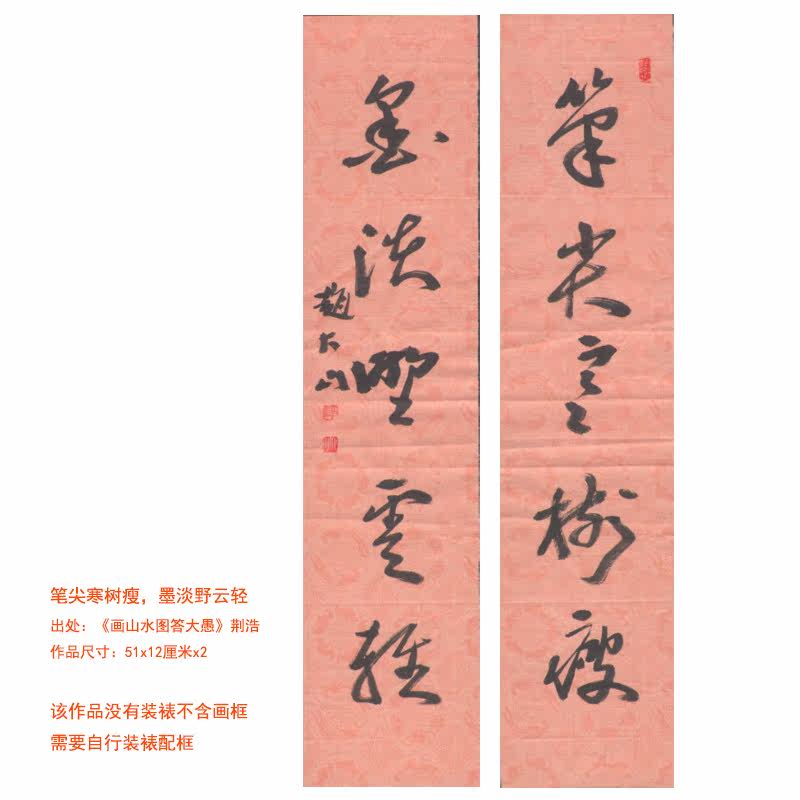 筆尖寒樹瘦
墨淡野雲輕
趙大山
笔尖寒树瘦，墨淡野云轻
出处：《画山水图答大愚》荆浩
作品尺寸：51x12厘米x2
该作品没有装裱不含画框
需要自行装裱配框